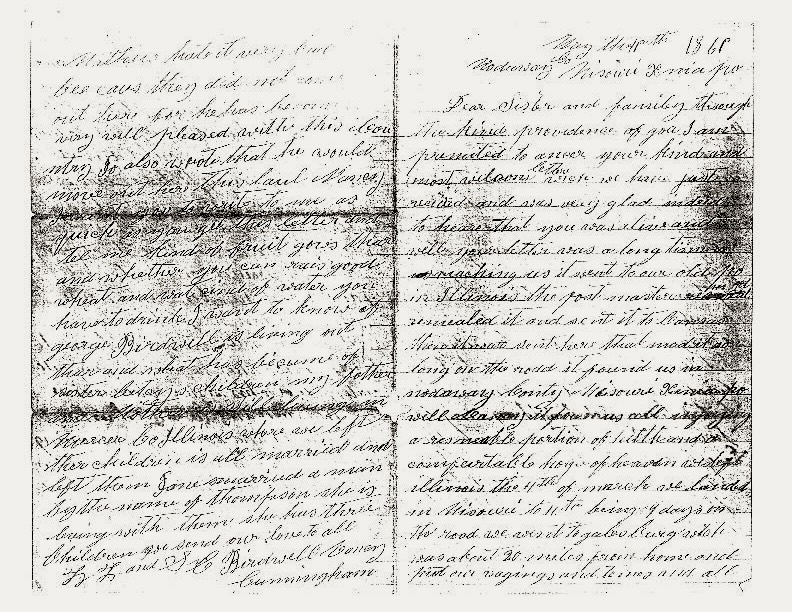 May the 10th 1868
Nodaway Co Missouri Xenia po
Dear Sister and family through
the kind providence of god I am
premited to ancer your kind and
most welcom letter which we have just
recived and was very glad indeed
to hear that you was alive and
well your letter was a long time
reaching us it went to our old po
in Illinois the post master
remailed it and sent it to
then it was sent here that mad it so
long on the road it found us in
nodaway County Missouri Xenia po
well it found us all injoying
a resonable portion of hilth and a
compfortable hope of heaven we left
illinois the 4th of march we landed
in Missouri the 11th being 7 days on
the road we went to galesburg which
was about 30 miles from home and
put our wagings and teems and all
Mathew hate it very bad
bee caus they did not come
out here for he has becom
very well pleased with this cou
ntry Jo also wrote that he would
move out here this fall Nancy
to me as
quick as you get this letter and
tel me kind of fruit grows thare
and whether you can rais good
wheat and what kind of water you
have to drink I want to know if
george Birdwell is living out
thar and what has become of
sister betsys children my father
Warren Co Illinois where we left
ther children is all married and
left them Jane married a man
by the name of thompson she is
living with them she has three
children we send our love to all
L L and S C Birdwell to Nancy
Cunningham